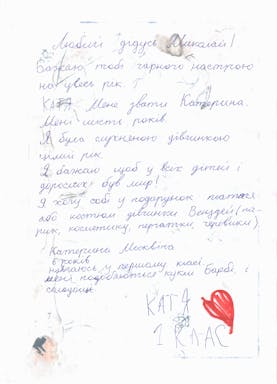 Любий дідусь Миколай!
Бажаю тобі гарного настрою
на увесь рік!
КАТЯ Мене звати Катерина.
Мені шість років.
Я була слухняною дівчинкою
цілий рік.
Я бажаю щоб у всех дітей і
дорослих був мир!
Я хочу собі у подарунок платтє
або костюм дівчинки Венздей (па-
рик, косметику, перчатки, черевики)
Катерина Москвіна
6 років
навчаюсь у першому класі.
мені подобаються кукли Барбі і
солодощі
КАТЯ
1 КЛАС